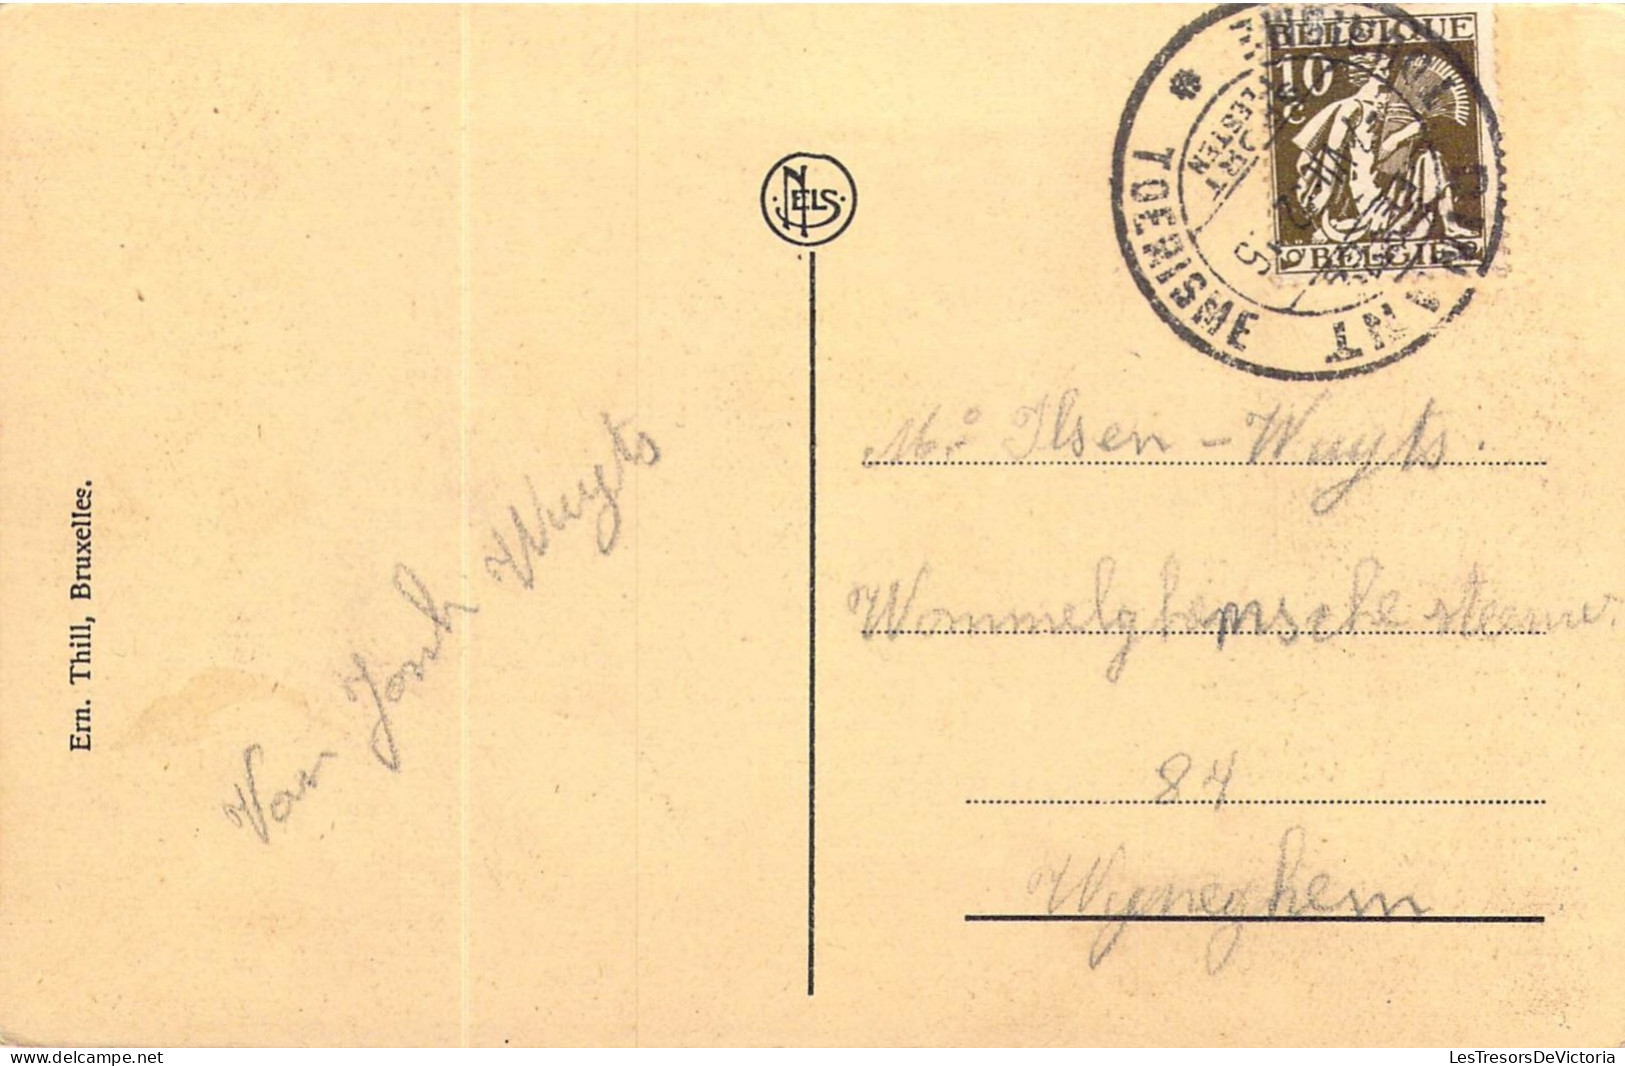 BELGIQUE
10
c
BELGIË
TOERISME
NELS
Ern. Thill, Bruxelles.
Van Jonh Wuyts
Mr Ilsen - Wuyts.
Wommelghemsche steenw.
84
Wyneghem
www.delcampe.net
LesTresorsDeVictoria